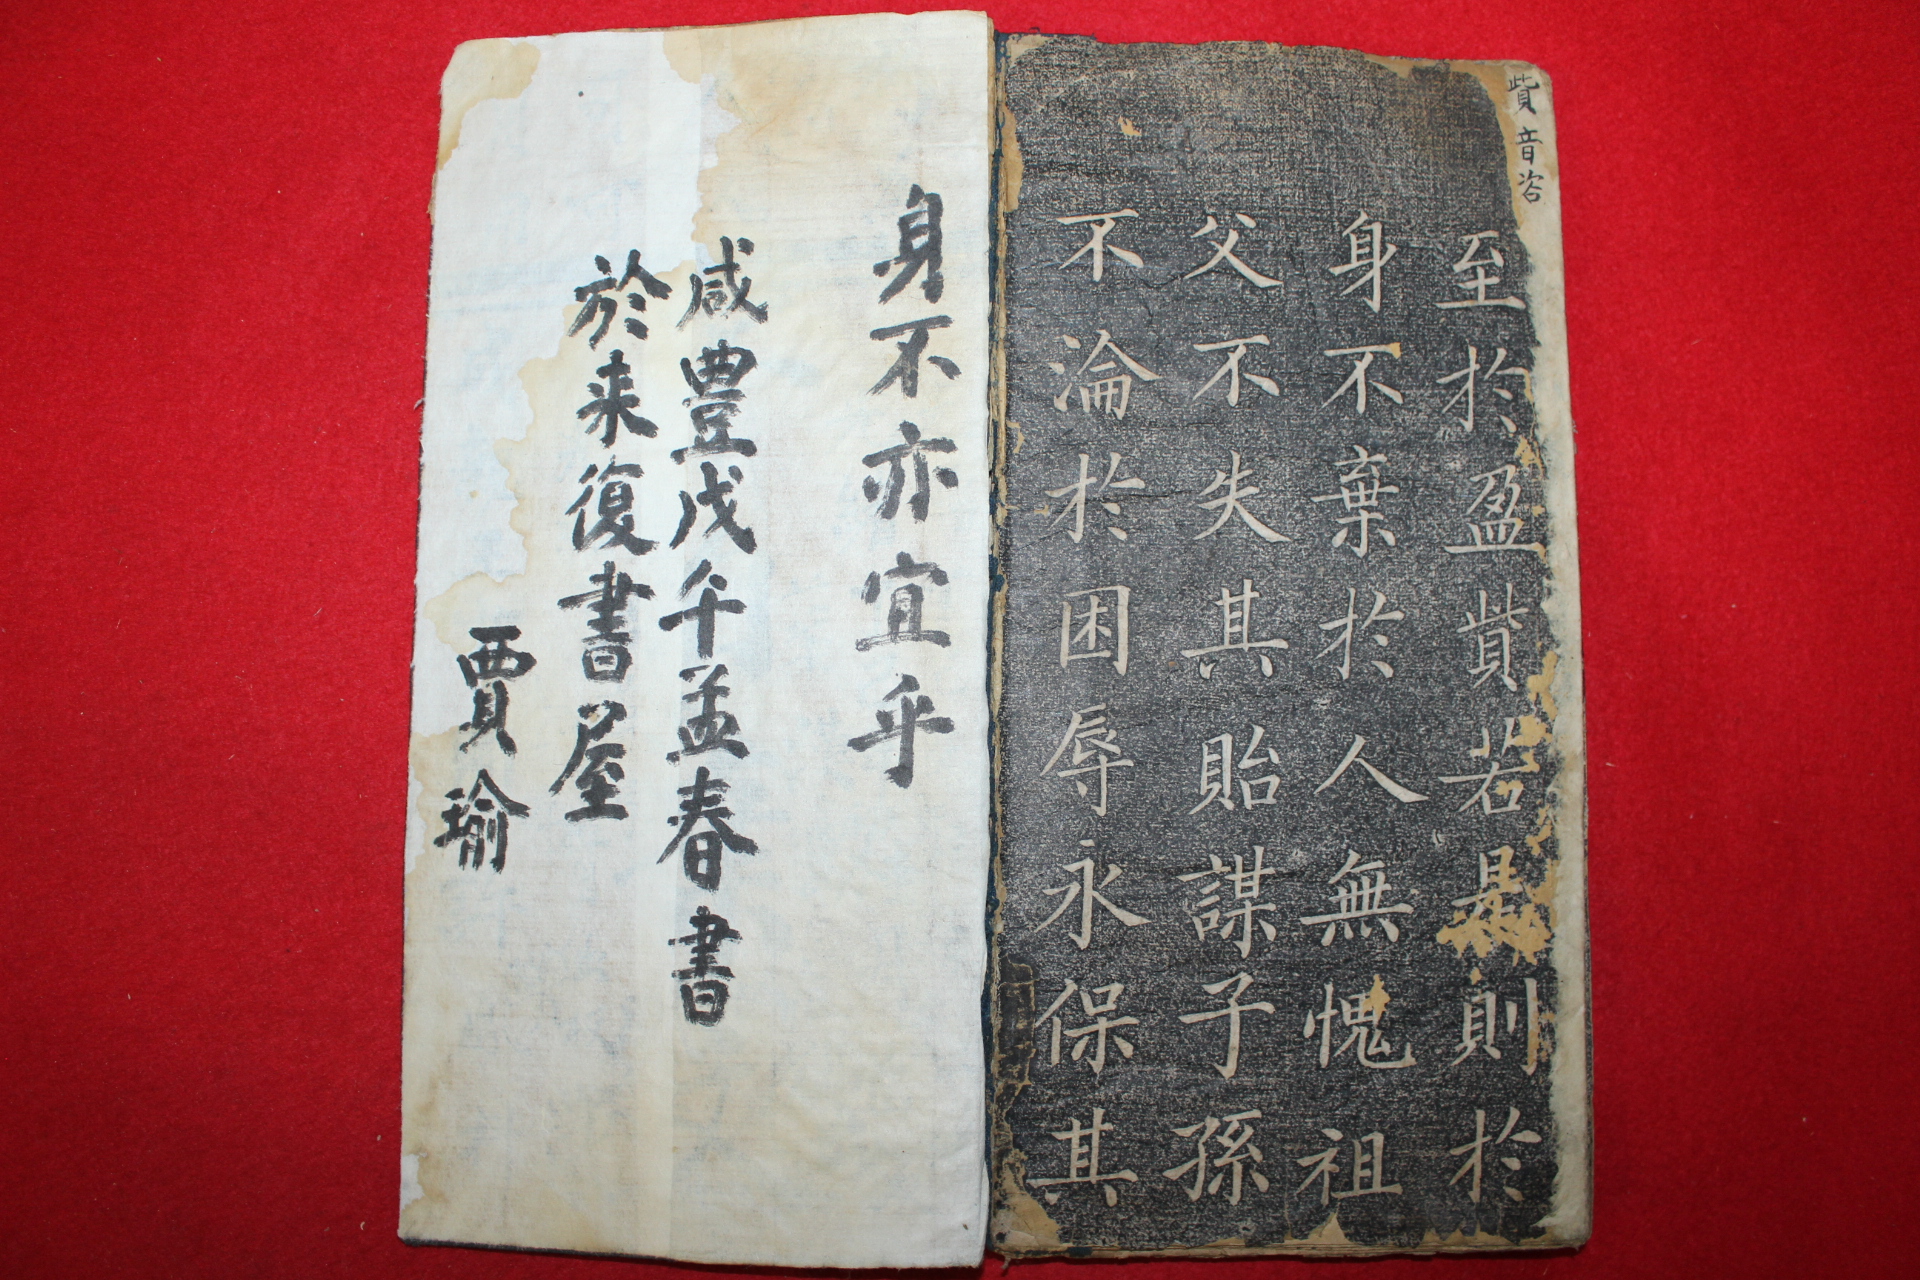 貲音咨
至於盈貲若是則於
身不棄於人無愧祖
父不失其貽謀子孫
不淪於困辱永保其
身不亦宜乎
咸豐戊午孟春書
於来復書屋
賈瑜